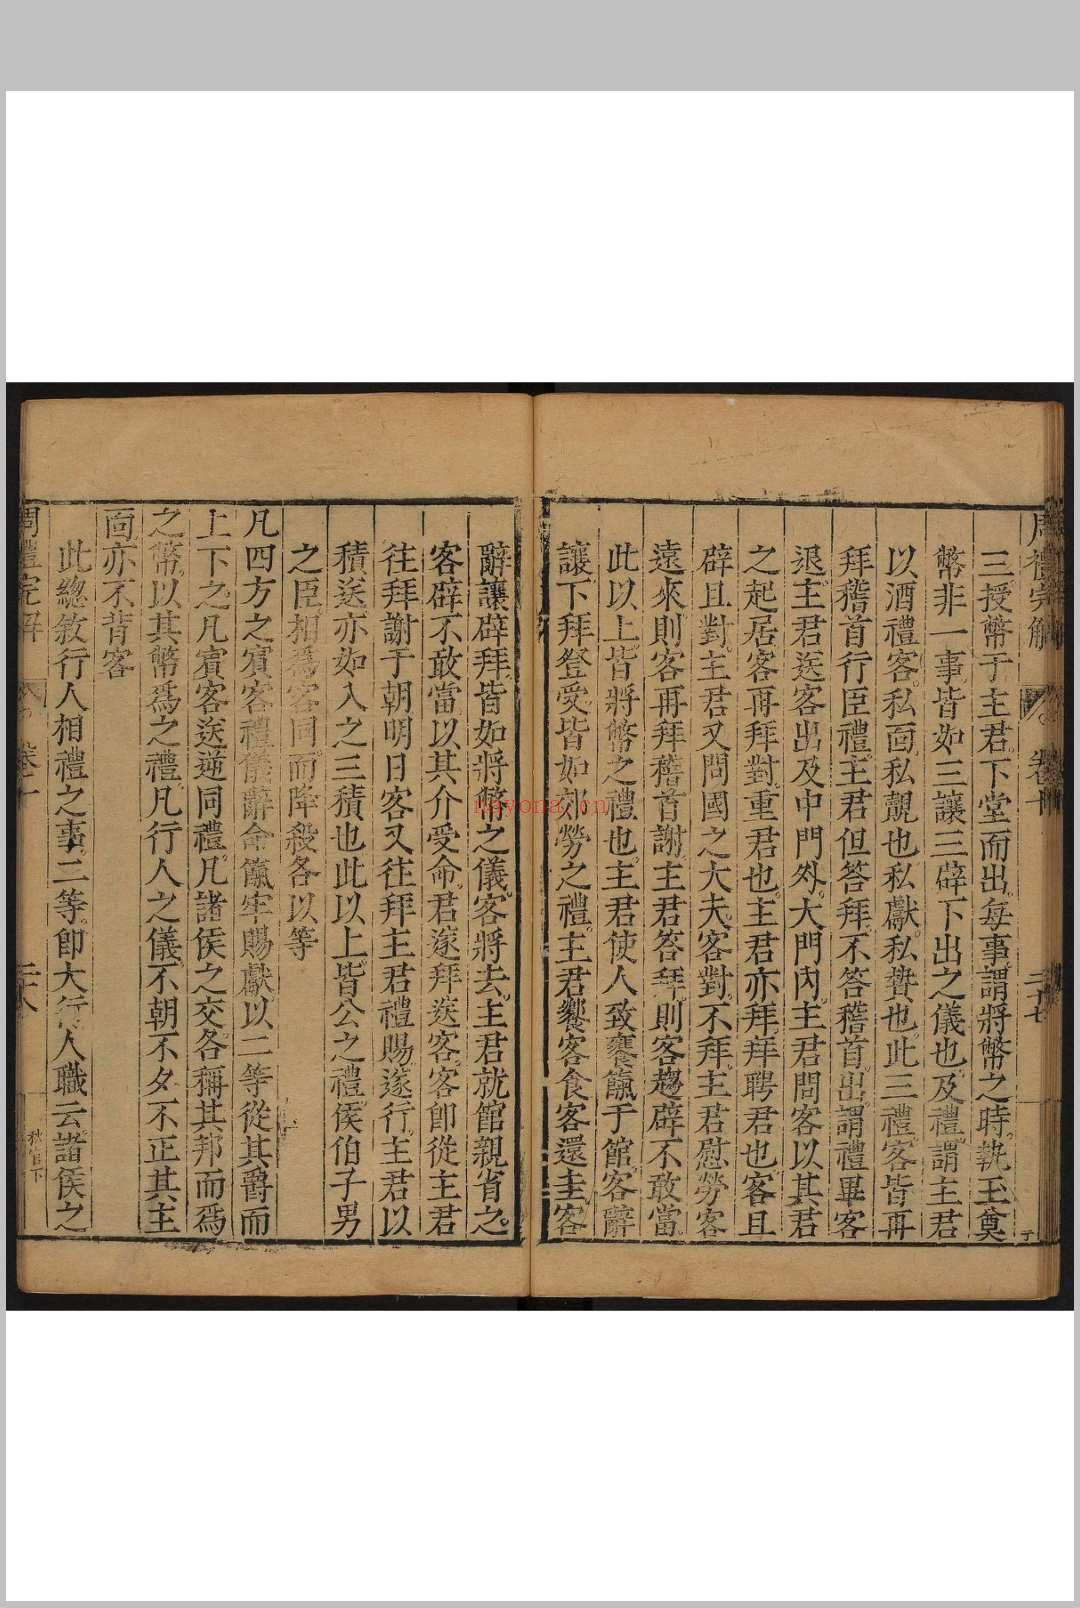 周禮完解 卷十 二十七
三授幣于主君。下堂而出。每事謂將幣之時。執玉奠
幣非一事。皆如三讓三辟下出之儀也。及禮。謂主君
以酒禮客。私面。私覿也。私獻。私贄也。此三禮。客皆再
拜稽首。行臣禮。主君但答拜。不答稽首。出。謂禮畢。客
退。主君送客出。及中門外。大門內。主君問客以其君
之起居。客再拜對。重君也。主君亦拜。拜聘君也。客且
辟且對。主君又問國之大夫。客對。不拜。主君慰勞客
遠來。則客再拜稽首謝。主君答拜。則客趨辟不敢當。
此以上。皆將幣之禮也。主君使人致饔餼于館。客辭
讓。下拜登受。皆如郊勞之禮。主君饗客食客還圭。客
辭讓辟拜。皆如將幣之儀。客將去。主君就館親省之。
客辟不敢當。以其介受命。君遂拜送客。客即從主君
往。拜謝于朝。明日客又往拜主君禮賜。遂行。主君以
積送。亦如入之三積也。此以上。皆公之禮。侯伯子男
之臣。相爲客同。而降殺各以等
凡四方之賓客禮儀辭命餼牢賜獻。以二等從其爵而
上下之。凡賓客送逆同禮。凡諸侯之交。各稱其邦而爲
之幣。以其幣爲之禮。凡行人之儀。不朝不夕。不正其主
面亦不背客
此總敘行人相禮之事。二等。即大行人職云。諸侯之
周禮完解 卷十 二十八 秋官下